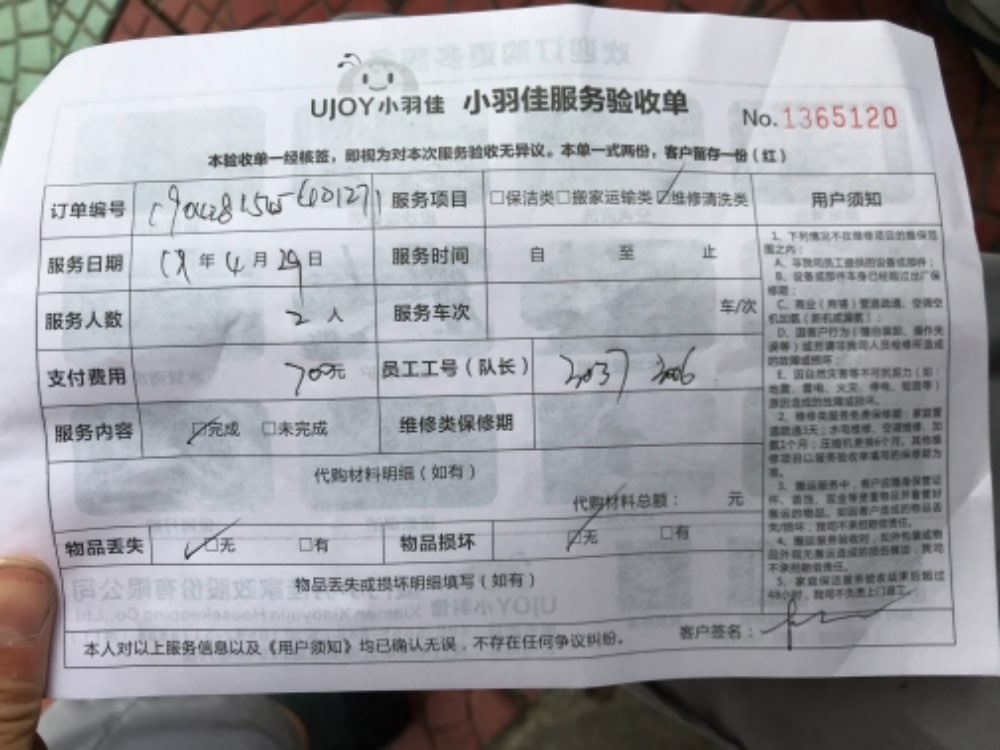 UJOY小羽佳 小羽佳服务验收单
No.1365120
本验收单一经核签，即视为对本次服务验收无异议。本单一式两份，客户留存一份（红）
订单编号 服务项目 □保洁类□搬家运输类☑维修清洗类 用户须知
服务日期 18年4月29日 服务时间 自 至 止
服务人数 2人 服务车次 车/次
支付费用 700元 员工工号（队长） 2037 3006
服务内容 ☑完成 □未完成 维修类保修期
代购材料明细（如有）
代购材料总额： 元
物品丢失 ☑无 □有 物品损坏 ☑无 □有
物品丢失或损坏明细填写（如有）
本人对以上服务信息以及《用户须知》均已确认无误，不存在任何争议纠纷。 客户签名：
1、下列情况不在维修项目的维保范
围之内：
A、非我司员工提供的设备或部件；
B、设备或部件本身已经超过出厂保
修期；
C、商业（商铺）管道疏通、空调空
机加氨（新机或漏氨）；
D、因客户行为（擅自装卸、操作失
误等）或另请非我司人员检修所造成
的故障或损坏；
E、因自然灾害等不可抗能力（如：
地震、雷电、火灾、停电、短路等）
原因造成的故障或损坏。
2、维修类服务免费保修期：家庭管
道疏通3天；水电维修、空调维修、加
氨1个月；压缩机更换6个月。其他维
修项目以服务验收单填写的保修期为
准。
3、搬运服务中，客户应随身保管证
件、首饰、现金等贵重物品并看管好
搬运的物品。如因客户造成的物品丢
失/损坏，我司不承担赔偿责任。
4、搬运服务验收时，如外包装或物
品外观无搬运造成的损伤痕迹，我司
不承担赔偿责任。
5、家庭保洁服务验收结束后超过
48小时，我司不负责上门返工。